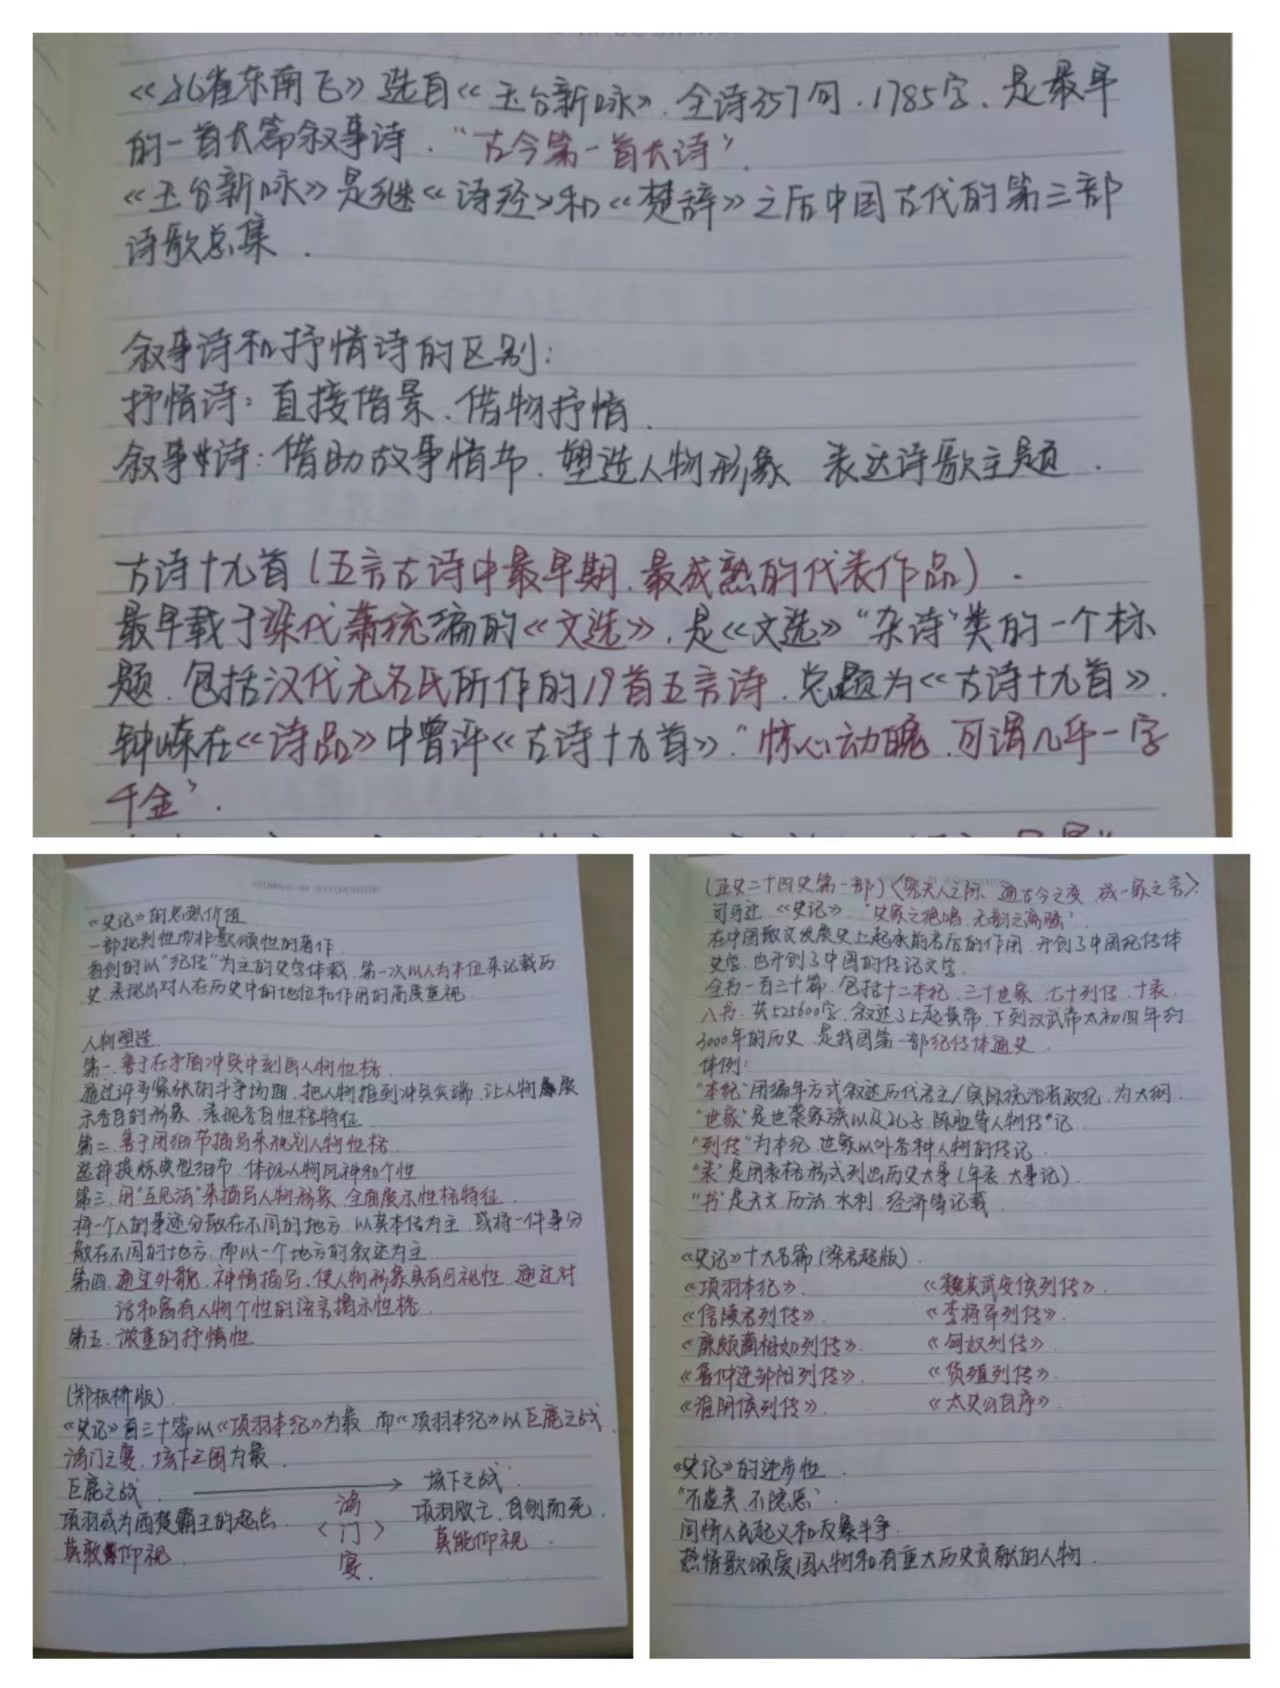 《孔雀东南飞》选自《玉台新咏》，全诗357句，1785字，是最早
的一首长篇叙事诗，“古今第一首长诗”。
《玉台新咏》是继《诗经》和《楚辞》之后中国古代的第三部
诗歌总集．
叙事诗和抒情诗的区别：
抒情诗：直接借景、借物抒情．
叙事诗：借助故事情节、塑造人物形象 表达诗歌主题．
古诗十九首（五言古诗中最早期、最成熟的代表作品）．
最早载于梁代萧统编的《文选》，是《文选》“杂诗”类的一个标
题，包括汉代无名氏所作的19首五言诗，总题为《古诗十九首》．
钟嵘在《诗品》中曾评《古诗十九首》“惊心动魄，可谓几乎一字
千金”．
《史记》的思想价值
一部批判性而非歌颂性的著作．
首创的以“纪传”为主的史学体裁，第一次以人为本位来记载历
史，表现出对人在历史中的地位和作用的高度重视．
人物塑造．
第一、善于在矛盾冲突中刻画人物性格．
通过许多紧张的斗争场面，把人物推到冲突尖端，让人物展
示各自的形象，表现各自性格特征．
第二、善于用细节描写来规划人物性格．
选择提炼典型细节，体现人物风神和个性
第三、用“互见法”来描写人物形象，全面展示性格特征．
将一个人的事迹分散在不同的地方，以其本传为主，或将一件事分
散在不同的地方，而以一个地方的叙述为主．
第四、通过外貌、神情描写，使人物形象具有可视性，通过对
话和富有人物个性的语言揭示性格．
第五、浓重的抒情性
（郑板桥版）
《史记》百三十篇以《项羽本纪》为最 而《项羽本纪》以巨鹿之战，
鸿门之宴，垓下之围为最．
巨鹿之战．→垓下之战．
项羽成为西楚霸王的起点．〈鸿门宴〉项羽败亡，自刎而死．
莫敢仰视．莫能仰视．
（正史二十四史第一部）〈究天人之际，通古今之变，成一家之言〉
司马迁 《史记》 “史家之绝唱，无韵之离骚”
在中国散文发展史上起承前启后的作用，开创了中国纪传体
史学，也开创了中国的传记文学．
全书一百三十篇，包括十二本纪、三十世家、七十列传、十表、
八书，共525600字，叙述了上起黄帝，下到汉武帝太初四年约
3000年的历史，是我国第一部纪传体通史．
体例：
“本纪”用编年方式叙述历代君主/实际统治者政纪，为大纲．
“世家”是世袭家族以及孔子、陈胜等人物传记
“列传”为本纪、世家以外各种人物的传记．
“表”是用表格形式列出历史大事（年表、大事记）
“书”是天文、历法、水利、经济等记载．
《史记》十大名篇（梁启超版）．
《项羽本纪》． 《魏其武安侯列传》．
《信陵君列传》． 《李将军列传》．
《廉颇蔺相如列传》． 《匈奴列传》．
《鲁仲连邹阳列传》． 《货殖列传》．
《淮阴侯列传》． 《太史公自序》．
《史记》的进步性．
“不虚美、不隐恶”．
同情人民起义和反暴斗争．
热情歌颂爱国人物和有重大历史贡献的人物．